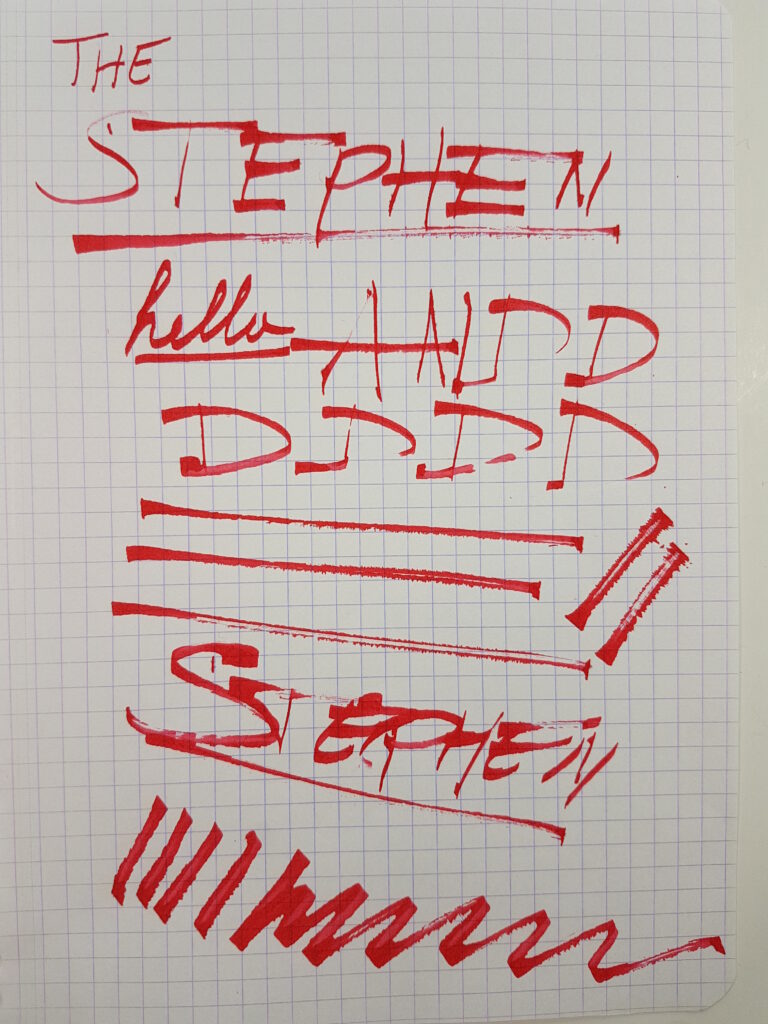 THE
STEPHEN
hello AND D
D D D D
STEPHEN